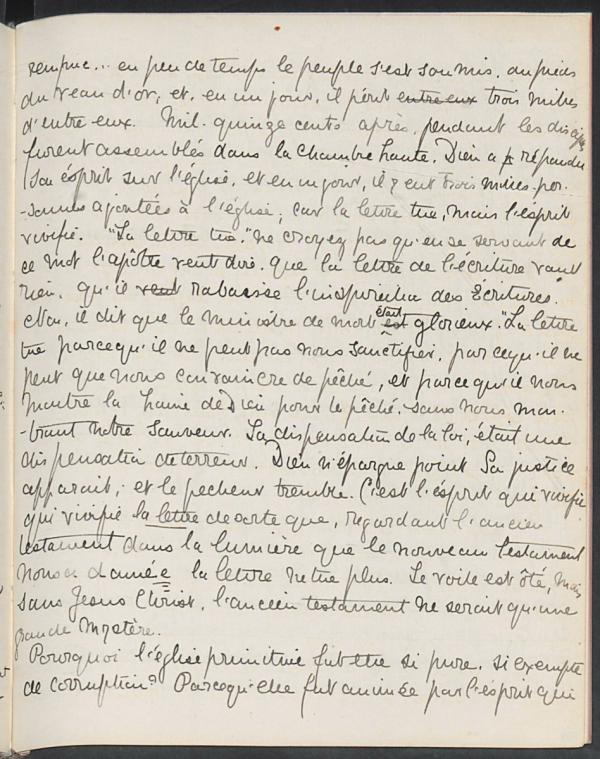 rempue... en peu de temps le peuple s'est soumis, au pieds
du veau d'or, et, en un jour, il périt entre eux trois milles
d'entre eux. Mil. quinze cents après, pendant les disciples
furent assemblés dans la chambre haute, Dieu a répandu
Son ésprit sur l'église, et en un jour, il y eut trois milles per-
-sonnes ajoutées à l'église, car la lettre tue, mais l'ésprit
vivifie. "La lettre tue." ne croyez pas qu'en se servant de
ce mot l'apôtre veut dire, que la lettre de l'écriture vaut
rien, qu'il veut rabaisse l'inspiration des Ecritures.
Non, il dit que le ministre de mort est était glorieux. "La lettre
tue parcequ'il ne peut pas nous sanctifier, parcequ'il ne
peut que nous convaincre de pêché, et parcequ'il nous
montre la haine de Dieu pour le pêché, sans nous mon-
-trant notre Sauveur. La dispensation de la loi, était une
dispensation de terreur. Dieu n'épargne point Sa justice
apparait, et le pecheur tremble. C'est l'ésprit qui vivifie
qui vivifie la lettre de sorte que, regardant l'ancien
testament dans la lumière que le nouveau testament
nous a donnée la lettre ne tue plus. Le voile est ôté, mais
sans Jesus Christ, l'ancien testament ne serait qu'une
grande Mystère.
Pourquoi l'église primitive fut elle si pure, si exempte
de corruption? Parcequ'elle fut animée par l'ésprit qui